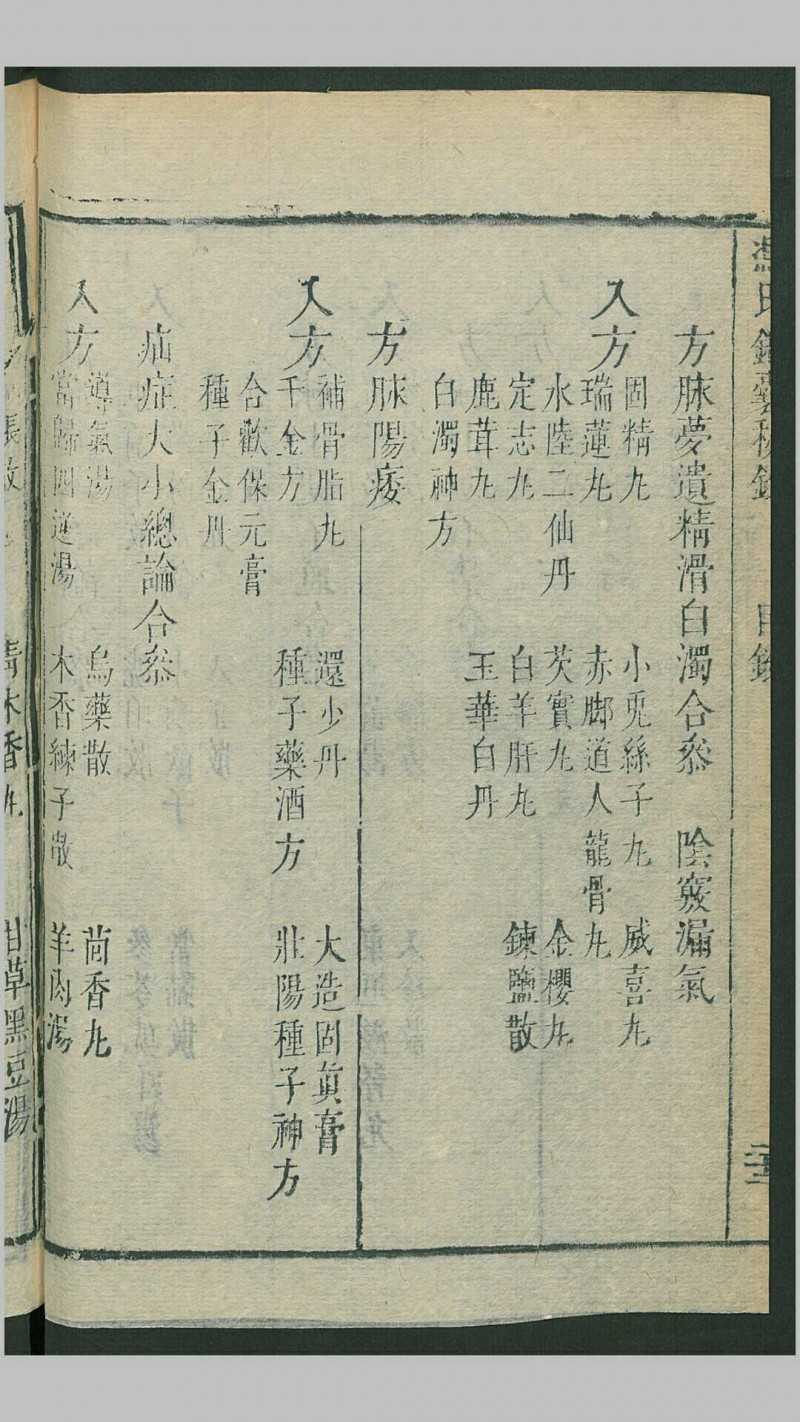 馮氏錦囊秘錄 目錄
方脉夢遺精滑白濁合叅 陰竅漏氣
入方
固精丸 小兎絲子丸 威喜丸
瑞蓮丸 赤脚道人龍骨丸
水陸二仙丹 芡實丸 金櫻丸
定志丸 白羊肝丸 鍊鹽散
鹿茸丸 玉華白丹
白濁神方
方脉陽痿
入方
補骨脂丸 還少丹 大造固眞膏
千金方 種子藥酒方 壯陽種子神方
合歡保元膏
種子金丹
疝症大小總論合叅
入方
導氣湯 烏藥散 茴香丸
當歸四逆湯 木香練子散 羊肉湯
青木香丸 甘草黑豆湯